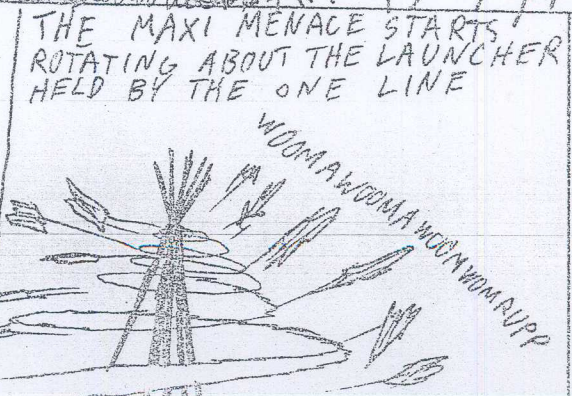 THE MAXI MENACE STARTS
ROTATING ABOUT THE LAUNCHER
HELD BY THE ONE LINE
WOOMAWOOMAWOOMWOMRUPP